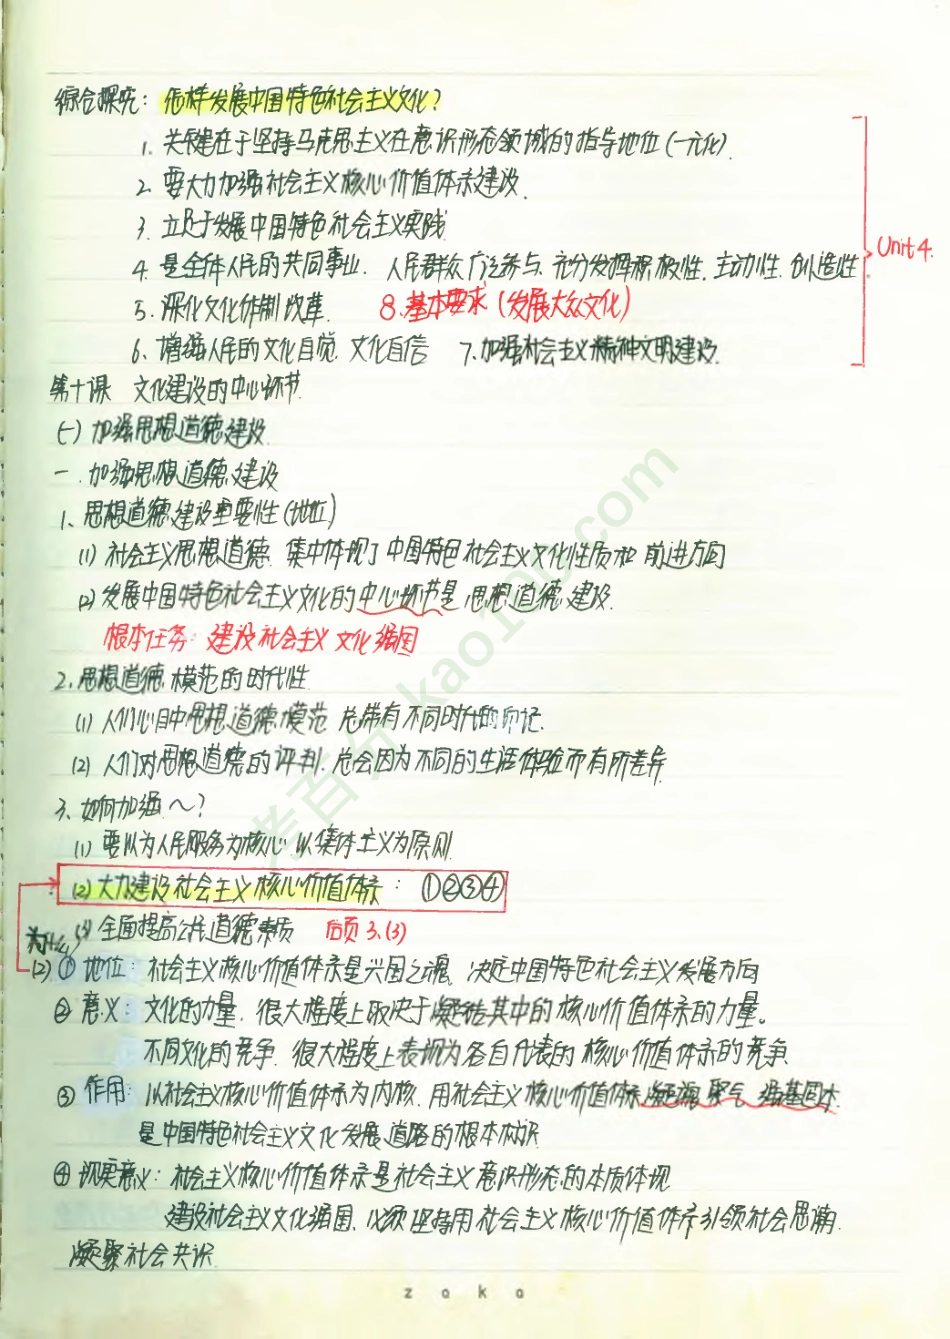 综合探究：怎样发展中国特色社会主义文化?
1. 关键在于坚持马克思主义在意识形态领域的指导地位(一元化).
2. 要大力加强社会主义核心价值体系建设.
3. 立足于发展中国特色社会主义实践
4. 是全体人民的共同事业. 人民群众广泛参与. 充分发挥积极性. 主动性. 创造性.
Unit 4.
5. 深化文化体制改革. 8.基本要求(发展大众文化)
6、增强人民的文化自觉 文化自信 7.加强社会主义精神文明建设.
第十课 文化建设的中心环节
(一) 加强思想道德建设.
一. 加强思想道德建设
1、思想道德建设重要性(地位)
(1) 社会主义思想道德 集中体现了中国特色社会主义文化性质和 前进方向
(2) 发展中国特色社会主义文化的中心环节是 思想道德建设.
根本任务: 建设社会主义文化强国
2、思想道德模范的时代性
(1) 人们心目中思想道德模范 总带有不同时代的印记.
(2) 人们对思想道德的评判. 总会因为不同的生活体验而有所差异
3、如何加强~?
(1) 要以为人民服务为核心 以集体主义为原则
(2) 大力建设社会主义核心价值体系 : ①②③④
(3) 全面提高公民道德素质 后页 3.(3)
为什么
(2) ① 地位: 社会主义核心价值体系是兴国之魂、决定中国特色社会主义发展方向
② 意义: 文化的力量, 很大程度上取决于凝结其中的核心价值体系的力量。
不同文化的竞争. 很大程度上表现为各自代表的核心价值体系的竞争.
③ 作用: 以社会主义核心价值体系为内核. 用社会主义核心价值体系凝魂聚气 强基固本.
是中国特色社会主义文化发展道路的根本标识
④ 现实意义: 社会主义核心价值体系是社会主义意识形态的本质体现
建设社会主义文化强国, 必须坚持用社会主义核心价值体系引领社会思潮.
凝聚社会共识.
考百分 kao100.com
zaka